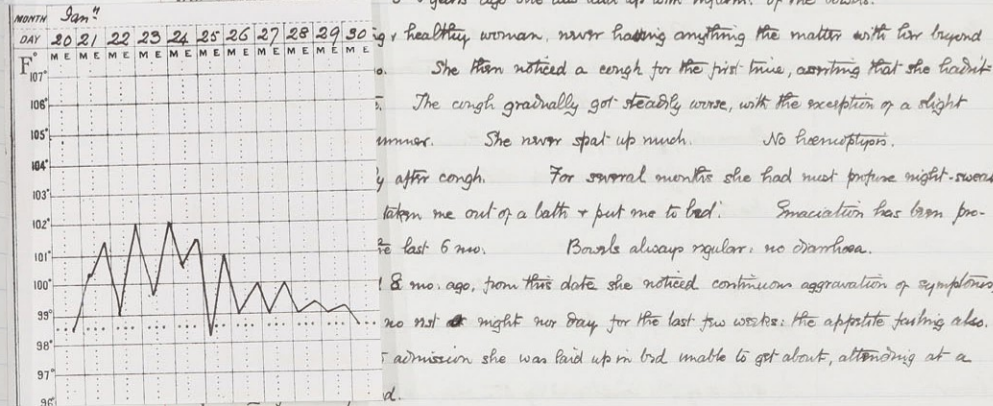 MONTH Jan'y
DAY 20 21 22 23 24 25 26 27 28 29 30
M E M E M E M E M E M E M E M E M E M E M E
F°
107°
106°
105°
104°
103°
102°
101°
100°
99°
98°
97°
96°
years ago she was laid up with inflam: of the bowels.
& healthy woman, never having anything the matter with her beyond
She then noticed a cough for the first time, asserting that she hadn't
The cough gradually got steadily worse, with the exception of a slight
She never spat up much. No hæmoptysis.
after cough. For several months she had most profuse night-sweats
taken me out of a bath & put me to bed'. Emaciation has been pro-
last 6 mo. Bowels always regular, no diarrhœa.
8 mo. ago, from this date she noticed continuous aggravation of symptoms,
no rest night nor day for the last few weeks: the appetite failing also.
admission she was laid up in bed unable to get about, attending at a
d.